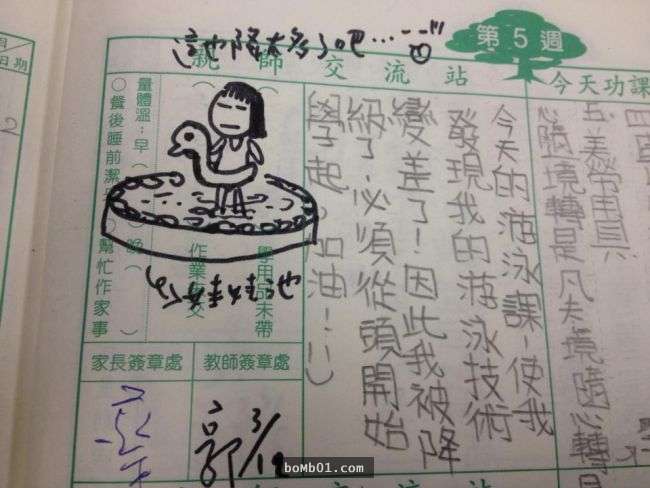 這也降太多了吧...
第5週
親師交流站
今天功課
月
日期
2
五美勞用具
心隨境轉是凡夫境隨心轉是
今天的游泳課,使我
發現我的游泳技術
變差了!因此我被降
級了,必須從頭開始
學起。加油!!:)
學用品未帶
作業
量體溫:早( )晚( )
○餐後睡前潔 幫忙作家事
娃娃池
家長簽章處
教師簽章處
郭 3/12
親師交流站
boMb01.com